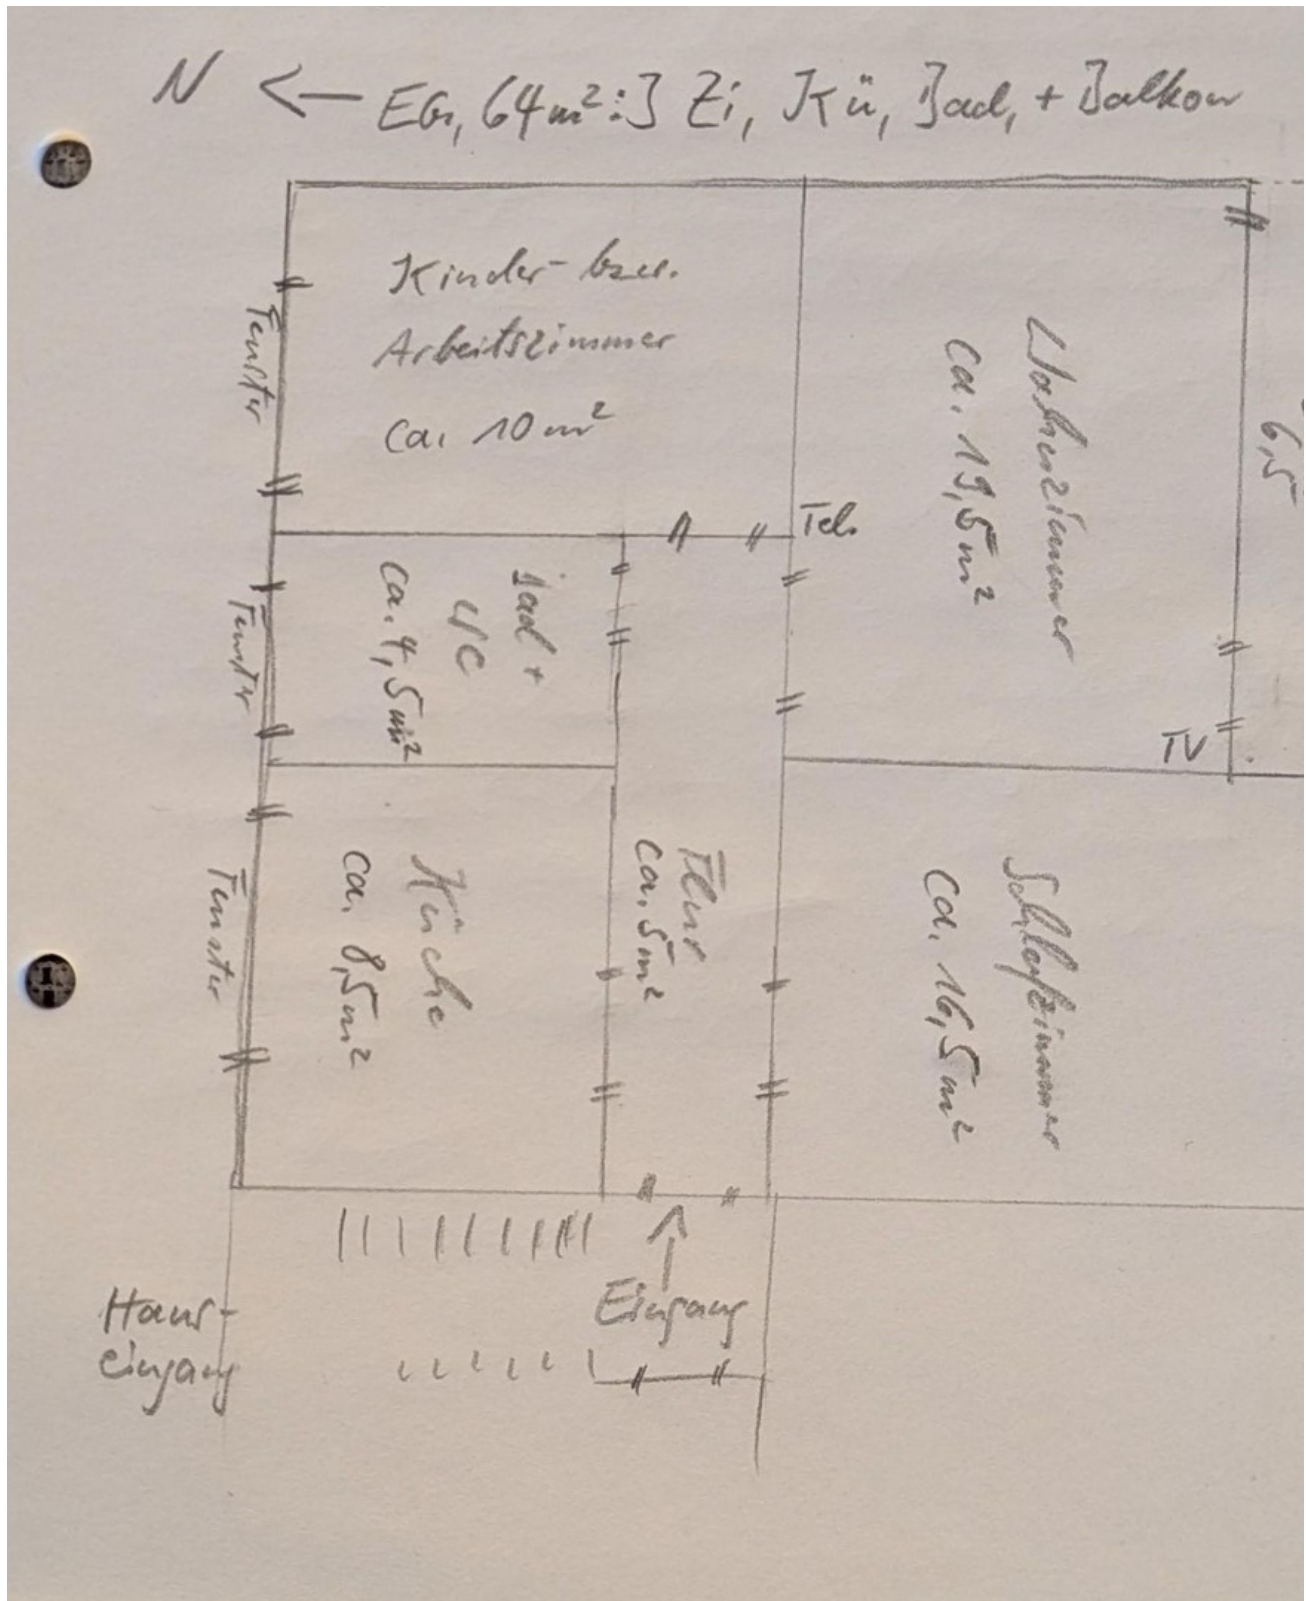 N ← EG, 64m²: 3 Zi, Kü, Bad, + Balkon
Kinder- bzw.
Arbeitszimmer
ca. 10m²
Fenster
Wohnzimmer
ca. 19,5m²
6,5
Tel.
Bad +
WC
ca. 4,5m²
Fenster
TV
Küche
ca. 8,5m²
Fenster
Flur
ca. 5m²
Schlafzimmer
ca. 16,5m²
Eingang
Haus-
eingang